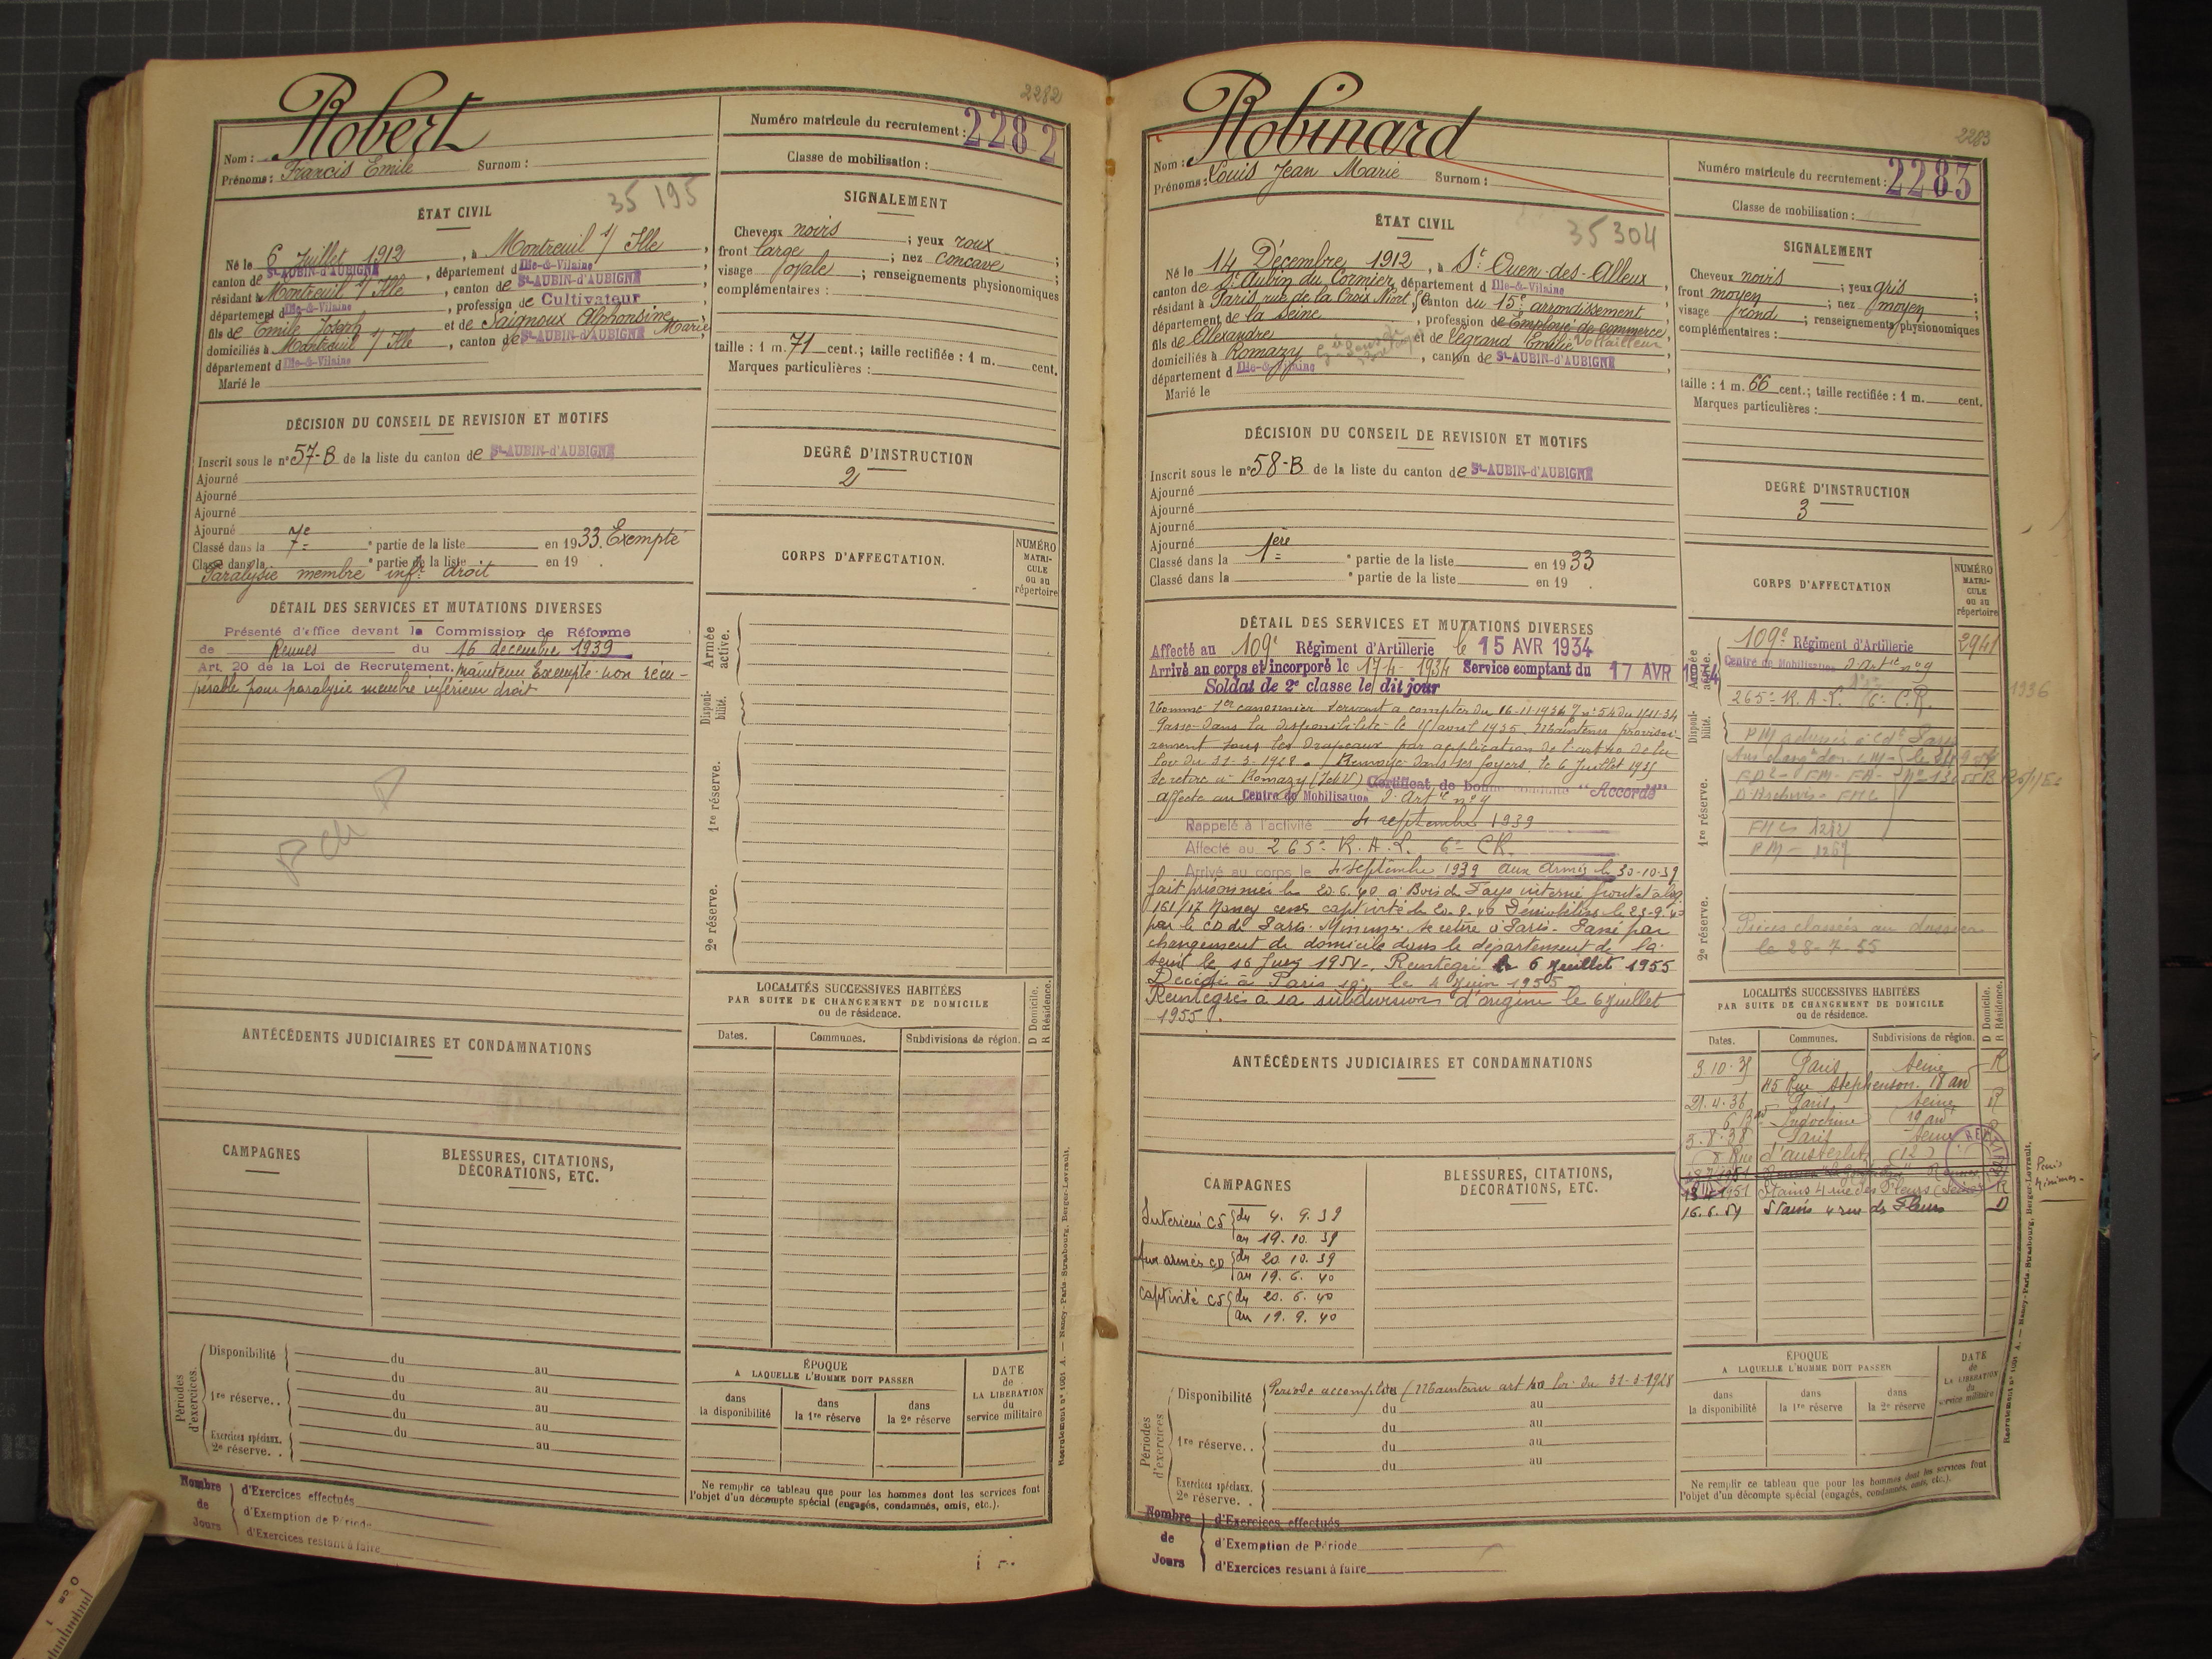 2282
Robert
Nom :
Prénoms : Francis Emile Surnom :
Numéro matricule du recrutement : 2282
Classe de mobilisation :
ÉTAT CIVIL
35 195
Né le 6 Juillet 1912, à Montreuil s/ Ille,
canton de St-AUBIN-d'AUBIGNÉ, département d Ille-&-Vilaine,
résidant à Montreuil s/ Ille, canton de St-AUBIN-d'AUBIGNÉ,
département d Ille-&-Vilaine, profession de Cultivateur,
fils de Emile Joseph et de Saignoux Alphonsine Marie,
domiciliés à Montreuil s/ Ille, canton de St-AUBIN-d'AUBIGNÉ,
département d Ille-&-Vilaine
Marié le
SIGNALEMENT
Cheveux noirs ; yeux roux ;
front large ; nez concave ;
visage ovale ; renseignements physionomiques
complémentaires :
taille : 1 m. 71 cent. ; taille rectifiée : 1 m. cent.
Marques particulières :
DÉCISION DU CONSEIL DE REVISION ET MOTIFS
Inscrit sous le n° 57-B de la liste du canton de St-AUBIN-d'AUBIGNÉ
Ajourné
Ajourné
Ajourné
Ajourné
Classé dans la 7e partie de la liste en 1933. Exempté
Classé dans la partie de la liste en 19 .
Paralysie membre infr droit
DEGRÉ D'INSTRUCTION
2
DÉTAIL DES SERVICES ET MUTATIONS DIVERSES
Présenté d'office devant la Commission de Réforme
de Rennes du 16 decembre 1939
Art. 20 de la Loi de Recrutement, maintenu Exempté non récu-
pérable pour paralysie membre inférieur droit
CORPS D'AFFECTATION.
NUMÉRO MATRI-CULE ou au répertoire
Armée active.
Disponi-bilité.
1re réserve.
2e réserve.
ANTÉCÉDENTS JUDICIAIRES ET CONDAMNATIONS
LOCALITÉS SUCCESSIVES HABITÉES
PAR SUITE DE CHANGEMENT DE DOMICILE
ou de résidence.
D Domicile. R Résidence.
Dates. Communes. Subdivisions de région.
CAMPAGNES
BLESSURES, CITATIONS,
DÉCORATIONS, ETC.
Périodes d'exercices.
Disponibilité du au
du au
1re réserve. . du au
du au
Exercices spéciaux. du au
2e réserve. .
ÉPOQUE
A LAQUELLE L'HOMME DOIT PASSER
dans la disponibilité
dans la 1re réserve
dans la 2e réserve
DATE de LA LIBÉRATION du service militaire
Ne remplir ce tableau que pour les hommes dont les services font
l'objet d'un décompte spécial (engagés, condamnés, omis, etc.).
Nombre de Jours
d'Exercices effectués
d'Exemption de Période
d'Exercices restant à faire
Recrutement n° 1001 A. — Nancy-Paris-Strasbourg, Berger-Levrault.
2283
Robinard
Nom :
Prénoms : Louis Jean Marie Surnom :
Numéro matricule du recrutement : 2283
Classe de mobilisation :
ÉTAT CIVIL
35 304
Né le 14 Décembre 1912, à St Ouen-des-Alleux,
canton de St Aubin du Cormier, département d Ille-&-Vilaine,
résidant à Paris, rue de la Croix Nivert, canton du 15e arrondissement
département de la Seine, profession de Employé de commerce, Volailleur
fils de Alexandre et de Legrand Emélie
domiciliés à Romazy, canton de St-AUBIN-d'AUBIGNÉ,
département d Ille-&-Vilaine
Marié le
SIGNALEMENT
Cheveux noirs ; yeux gris ;
front moyen ; nez moyen ;
visage rond ; renseignements physionomiques
complémentaires :
taille : 1 m. 66 cent. ; taille rectifiée : 1 m. cent.
Marques particulières :
DÉCISION DU CONSEIL DE REVISION ET MOTIFS
Inscrit sous le n° 58-B de la liste du canton de St-AUBIN-d'AUBIGNÉ
Ajourné
Ajourné
Ajourné
Ajourné
Classé dans la 1ère partie de la liste en 1933
Classé dans la partie de la liste en 19 .
DEGRÉ D'INSTRUCTION
3
DÉTAIL DES SERVICES ET MUTATIONS DIVERSES
Affecté au 109e Régiment d'Artillerie le 15 AVR 1934
Arrivé au corps et incorporé le 17-4-1934 Service comptant du 17 AVR 1934
Soldat de 2e classe le dit jour
Nommé 1er canonnier servant à compter du 16-11-1934
Passé dans la disponibilité le 15 avril 1935. Maintenu provisoi-
rement sous les drapeaux par application de l'art 40 de la
loi du 31-3-1928. Renvoyé dans ses foyers le 6 Juillet 1935
Se retire à Romazy (I et V) Certificat de bonne conduite "Accordé"
affecté au Centre de Mobilisation d'Artie n° 9
Rappelé à l'activité 4 septembre 1939
Affecté au 265e R.A.L. 6e CR.
Arrivé au corps le 4 septembre 1939 aux armées le 30-10-39
fait prisonnier le 20.6.40 à Bois de Fays interné
Nancy captivité le 20.9.40 Démobilisé le 23-9-40
par le CD de Paris. Minimes se retire à Paris. Passé par
changement de domicile dans le département de la
Seine le 16 Juin 1954. Réintégré le 6 Juillet 1955
Décédé à Paris le 4 Juin 1955
Réintégré à sa subdivision d'origine le 6 Juillet
1955.
CORPS D'AFFECTATION
NUMÉRO MATRI-CULE ou au répertoire
Armée active.
109e Régiment d'Artillerie 2941
Centre de Mobilisation d'Artie n° 9
265e R.A.L. 6e C.R.
1936
Disponi-bilité.
1re réserve.
2e réserve.
Pièces classées au dossier
le 28-7-55
ANTÉCÉDENTS JUDICIAIRES ET CONDAMNATIONS
LOCALITÉS SUCCESSIVES HABITÉES
PAR SUITE DE CHANGEMENT DE DOMICILE
ou de résidence.
D Domicile. R Résidence.
Dates. Communes. Subdivisions de région.
9.10.35 Paris Seine R
115 Rue Stephenson. 18 arr
21.4.36 Paris Seine R
Indochine (19 arr)
3.8.38 Paris Seine R
8 Rue d'Austerlitz (12)
1951 Stains 4 rue des Fleurs (Seine) R
16.6.54 Stains 4 rue des Fleurs D
CAMPAGNES
Intérieur CS du 4. 9. 39
au 19. 10. 39
Aux armées CD du 20. 10. 39
au 19. 6. 40
captivité CS du 20. 6. 40
au 19. 9. 40
BLESSURES, CITATIONS,
DÉCORATIONS, ETC.
Périodes d'exercices.
Disponibilité Période accomplie (Maintenu art 40 loi du 31-3-1928
du au
du au
1re réserve. . du au
du au
Exercices spéciaux.
2e réserve. .
ÉPOQUE
A LAQUELLE L'HOMME DOIT PASSER
dans la disponibilité
dans la 1re réserve
dans la 2e réserve
DATE de LA LIBÉRATION du service militaire
Ne remplir ce tableau que pour les hommes dont les services font
l'objet d'un décompte spécial (engagés, condamnés, omis, etc.).
Nombre de Jours
d'Exercices effectués
d'Exemption de Période
d'Exercices restant à faire
Recrutement n° 1001 A. — Nancy-Paris-Strasbourg, Berger-Levrault.